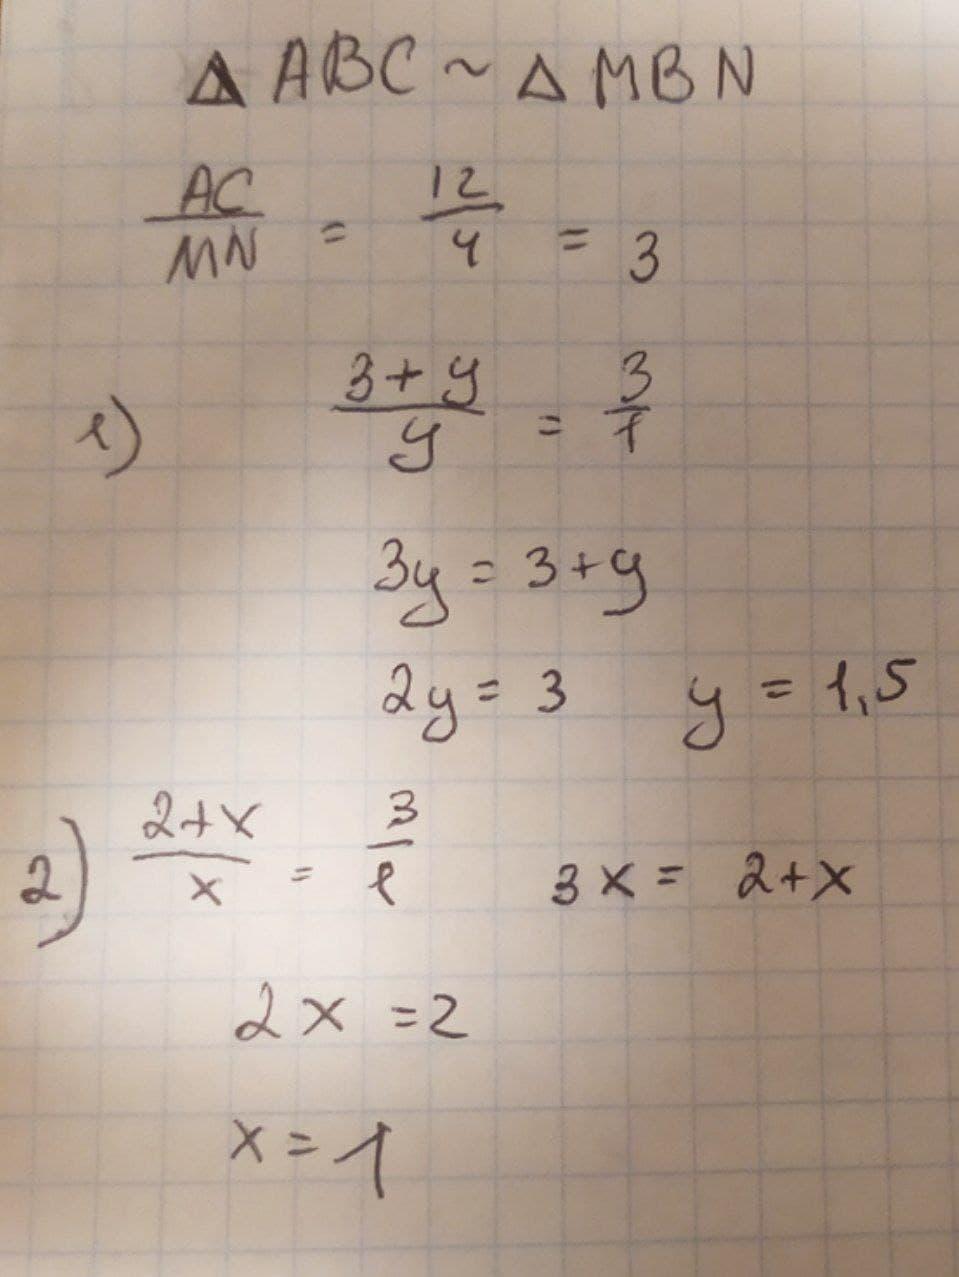 △ ABC ~ △ MBN
AC/MN = 12/4 = 3
1) (3+y)/y = 3/1
3y = 3+y
2y = 3 y = 1,5
2) (2+x)/x = 3/1 3x = 2+x
2x = 2
x = 1